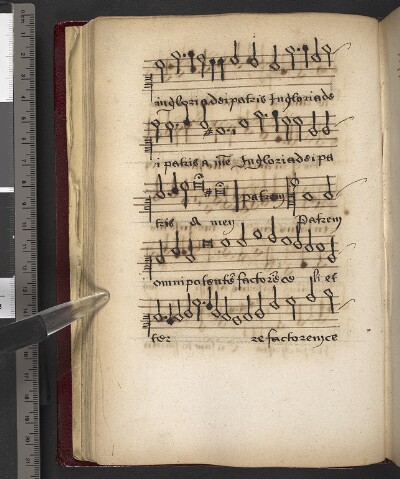 in gloria dei patris In gloria de
i patris a me In gloria dei pa
patrem
tris A men Patrem
omnipotente factore ce li et
ter re factorem ce